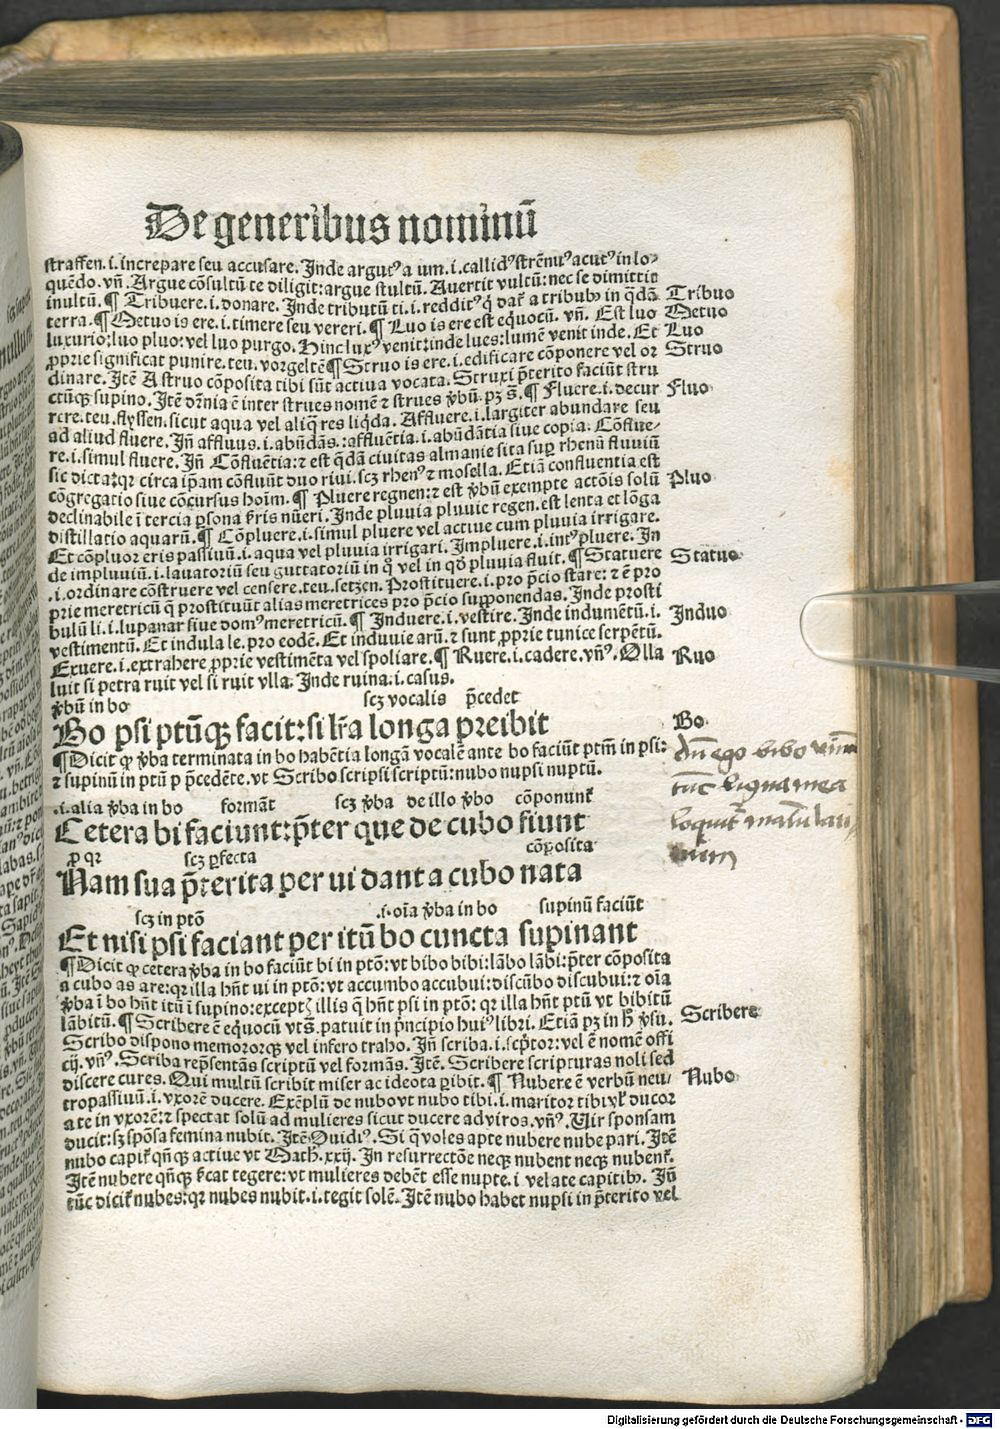 De generibus nominū
straffen. i. increpare seu accusare. Inde argutꝰ a um. i. callidꝰ strēnuꝰ acutꝰ in lo⸗
quēdo. vñ. Argue cōsultū te diliget: argue stultū. Avertit vultū: nec se dimittit
inultū. ¶ Tribuere. i. donare. Inde tributū ti. i. redditꝰ q̇ daꝛ̄ a tribubꝫ in q̇dā Tribuo
terra. ¶ Metuo is ere. i. timere seu vereri. ¶ Luo is ere est equocū. vñ. Est luo Metuo
luxurio: luo pluo: vel luo purgo. Hinc luxꝰ venit: inde lues: lumē venit inde. Et Luo
ꝓprie significat punire. teu. vorgeltē ¶ Struo is ere. i. edificare cōponere vel or Struo
dinare. Itē Astruo cōposita tibi sūt activa vocata. Struxi p̄terito faciūt stru
ctūqꝫ supino. Itē dr̄nia ē inter strues nomē ⁊ strues v̄bū. pꝫ s̄. ¶ Fluere. i. decur Fluo
rere. teu. flyssen. sicut aqua vel aliq̄ res liq̇da. Affluere. i. largiter abundare seu
ad aliud fluere. Iñ affluus. i. abūdās. : affluētia. i. abūdātia sive copia. Cōflue⸗
re. i. simul fluere. Iñ Cōfluētia: ⁊ est q̇dā civitas almanie sita suꝑ rhenū fluviū
sic dicta: qꝛ circa ip̄am cōfluūt duo rivi. scꝫ rhenꝰ ⁊ mosella. Etiā confluentia est
cōgregatio sive cōcursus hoīm. ¶ Pluere regnen: ⁊ est v̄bū exempte actōis solū Pluo
declinabile ī tercia ꝑsona ſr̄is nūeri. Inde pluvia pluvie regen. est lenta et lōga
distillatio aquarū. ¶ Cōpluere. i. simul pluere vel active cum pluvia irrigare.
Et cōpluor eris passivū. i. aqua vel pluvia irrigari. Impluere. i. intꝰ pluere. In
de impluviū. i. lavatoriū seu guttatoriū in q̊ vel in qd̄ pluvia fluit. ¶ Statuere Statuo
. i. ordinare cōstruere vel censere. teu. setzen. Prostituere. i. pro p̄cio stare: ⁊ ē pro
prie meretricū q̄ prostituūt alias meretrices pro p̄cio supponendas. Inde prosti
bulū li. i. lupanar sive domꝰ meretricū. ¶ Induere. i. vestire. Inde indumētū. i. Induo
vestimentū. Et indula le. pro eodē. Et induvie arū. ⁊ sunt ꝓprie tunice serpētū.
Exuere. i. extrahere ꝓprie vestimēta vel spoliare. ¶ Ruere. i. cadere. vñꝰ. Olla Ruo
luit si petra ruit vel si ruit ulla. Inde ruina. i. casus.
v̄bū in bo scꝫ vocalis p̄cedet
Bo psi ptūqꝫ facit: si lr̄a longa preibit Bo
¶ Dicit ꝙ v̄ba terminata in bo habētia longā vocalē ante bo faciūt ptm̄ in psi:
⁊ supinū in ptū p p̄cedēte. vt Scribo scripsi scriptū: nubo nupsi nuptū.
Dū ego bibo vinū
tūc ligua mea
loquit̄ malū lati
num
.i. alia v̄ba in bo formāt scꝫ v̄ba de illo v̄bo cōponunt̄
Cetera bi faciunt: p̄ter que de cubo fiunt
ꝓ qꝛ scꝫ ꝑfecta cōposita
Nam sua p̄terita per ui dant a cubo nata
scꝫ in ptō .i. oīa v̄ba in bo supinū faciūt
Et nisi psi faciant per itū bo cuncta supinant
¶ Dicit ꝙ cetera v̄ba in bo faciūt bi in ptō: vt bibo bibi: lābo lābi: p̄ter cōposita
a cubo as are: qꝛ illa hn̄t ui in ptō: vt accumbo accubui: discūbo discubui: ⁊ oīa
v̄ba ī bo hn̄t itū ī supino: exceptꝭ illis q̄ hn̄t psi in ptō: qꝛ illa hn̄t ptū vt bibitū
lābitū. ¶ Scribere ē equocū vts̄. patuit in p̄ncipio huiꝰ libri. Etiā pꝫ in h̊ v̄su. Scribere
Scribo dispono memororqꝫ vel infero traho. Iñ scriba. i. sc̄ptor: vel ē nomē offi
cij. vñꝰ. Scriba rep̄sentās scriptū vel formās. Itē. Scribere scripturas noli sed
discere cures. Qui multū scribit miser ac ideota ꝑibit. ¶ Nubere ē verbū neu⸗ Nubo
tropassivū. i. vxorē ducere. Exēplū de nubo vt nubo tibi. i. maritor tibi vl̓ ducor
a te in vxorē: ⁊ spectat solū ad mulieres sicut ducere ad viros. vñꝰ. Vir sponsam
ducit: sꝫ spōsa femina nubit. Itē Ouidiꝰ. Si q̄ voles apte nubere nube pari. Itē
nubo capit̄ qn̄qꝫ active vt Math. xxij. In resurrectōe neqꝫ nubent neqꝫ nubent̄.
Itē nubere qn̄qꝫ ſicat tegere: vt mulieres debēt esse nupte. i velate capitibꝫ. Iñ
tūc dicit̄ nubes: qꝛ nubes nubit. i. tegit solē. Itē nubo habet nupsi in p̄terito vel
Digitalisierung gefördert durch die Deutsche Forschungsgemeinschaft - DFG